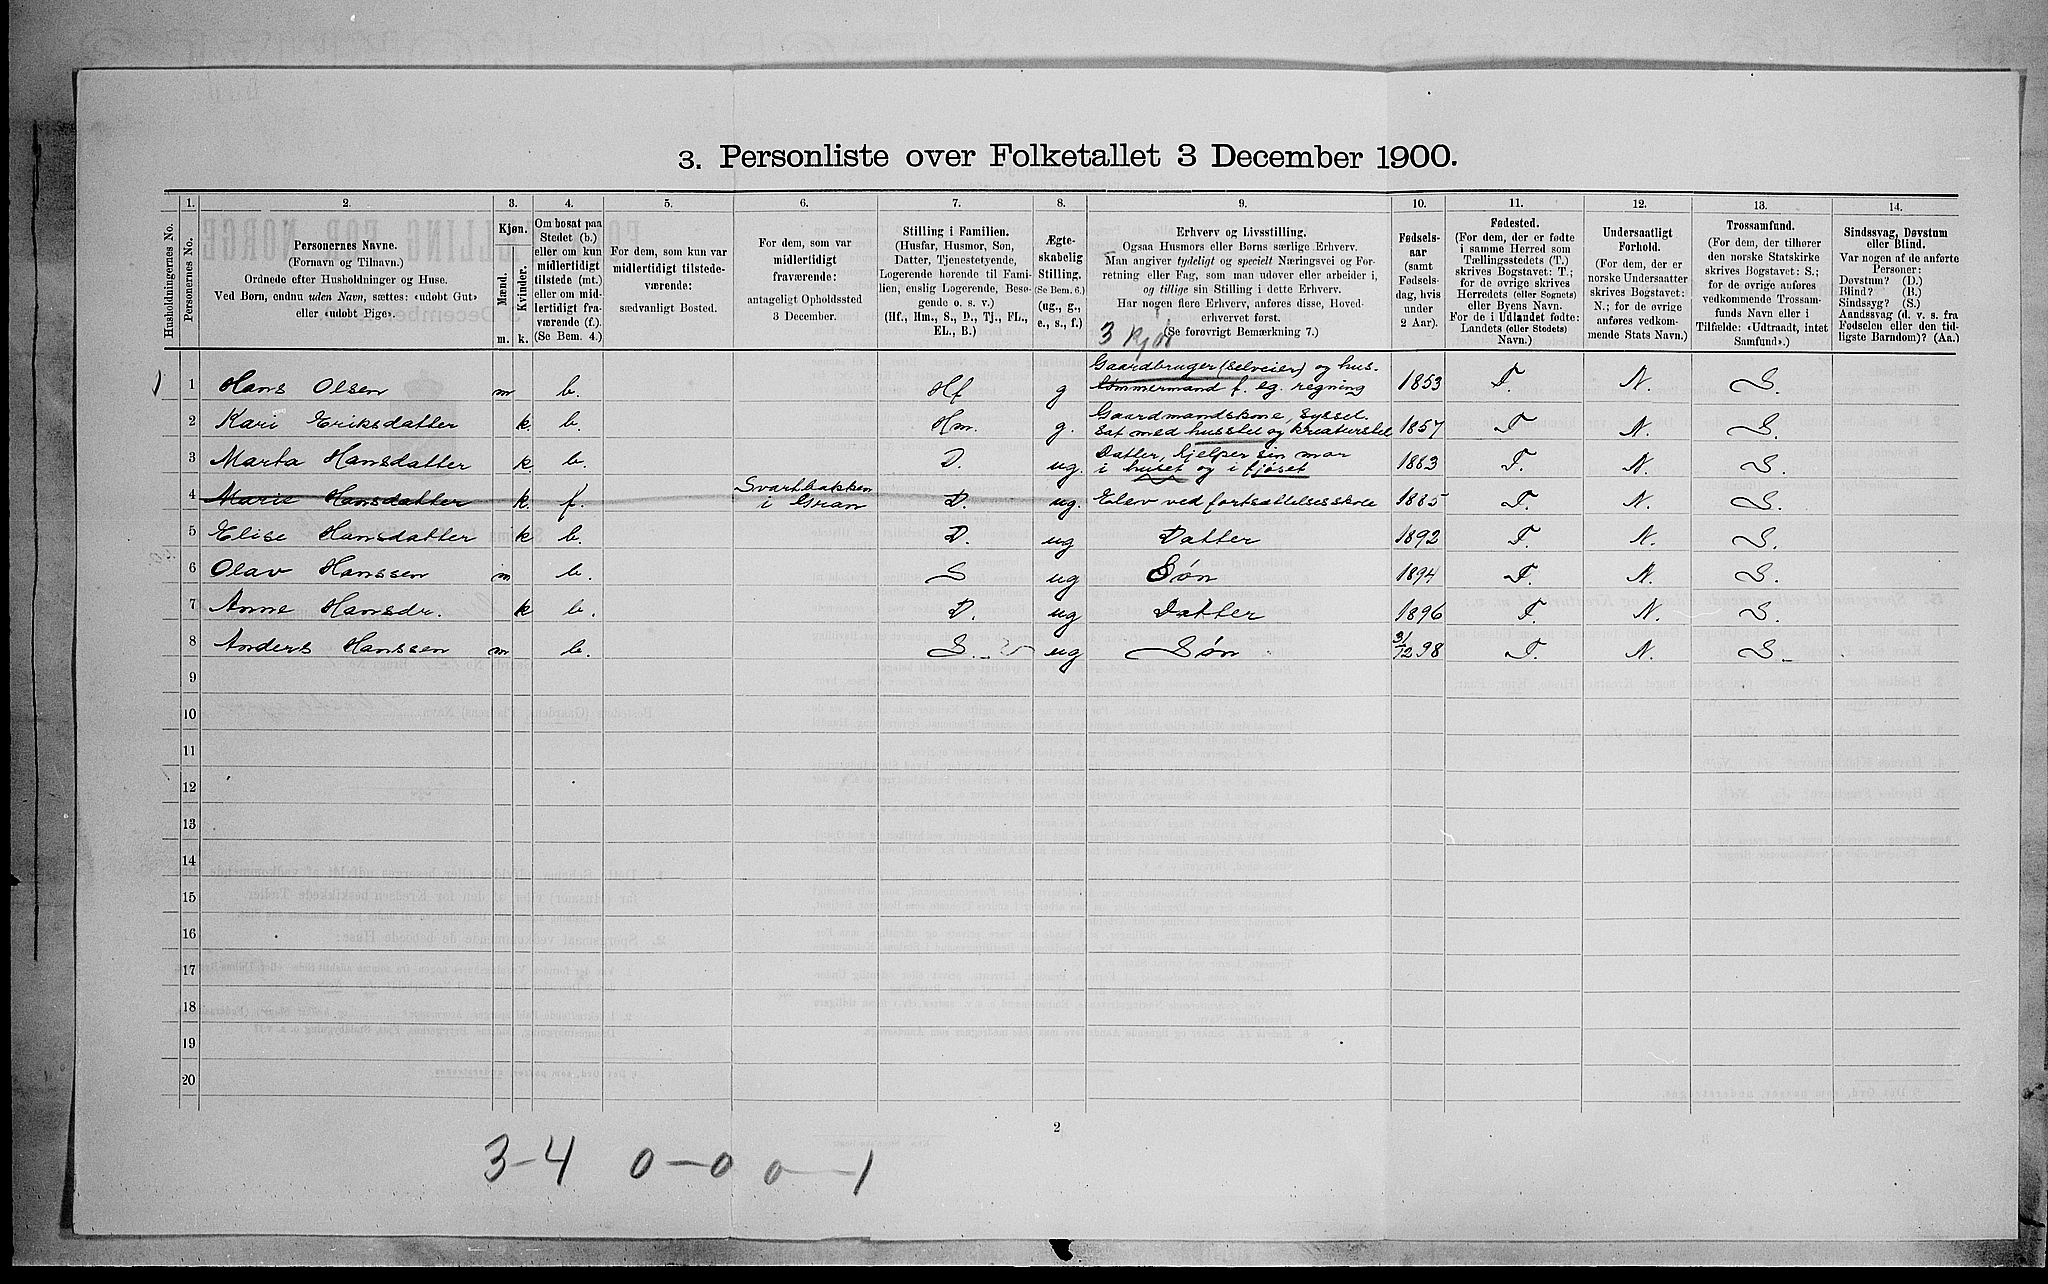 3. Personliste over Folketallet 3 December 1900.
1. 2. 3. 4. 5. 6. 7. 8. 9. 10. 11. 12. 13. 14.
Husholdningernes No.
Personernes No.
Personernes Navne.
(Fornavn og Tilnavn.)
Ordnede efter Husholdninger og Huse.
Ved Børn, endnu uden Navn, sættes: «udobt Gut»
eller «udobt Pige».
Kjøn.
Mænd.
Kvinder.
m. k.
Om bosat paa
Stedet (b.)
eller om kun
midlertidigt
tilstede (mt.)
eller om mid-
lertidigt fra-
værende (f.)
(Se Bem. 4.)
For dem, som kun var
midlertidigt tilstede-
værende:
sædvanligt Bosted.
For dem, som var
midlertidigt
fraværende:
antageligt Opholdssted
3 December.
Stilling i Familien.
(Husfar, Husmor, Søn,
Datter, Tjenestetyende,
Logerende hørende til Fami-
lien, enslig Logerende, Besø-
gende o. s. v.)
(Hf., Hm., S., D., Tj., FL.,
EL., B.)
Ægte-
skabelig
Stilling.
(Se Bem. 6.)
(ug., g.,
e., s., f.)
Erhverv og Livsstilling.
Ogsaa Husmors eller Børns særlige Erhverv.
Man angiver tydeligt og specielt Næringsvei og For-
retning eller Fag, som man udøver eller arbeider i,
og tillige sin Stilling i dette Erhverv.
Har nogen flere Erhverv, anføres disse, Hoved-
erhvervet først.
(Se forøvrigt Bemærkning 7.)
Fødsels-
aar
(samt
Fødsels-
dag, hvis
under
2 Aar).
Fødested.
(For dem, der er fødte
i samme Herred som
Tællingsstedets (T.)
skrives Bogstavet: T.;
for de øvrige skrives
Herredets (eller Sognets)
eller Byens Navn.
For de i Udlandet fødte:
Landets (eller Stedets)
Navn.)
Undersaatligt
Forhold.
(For dem, der er
norske Undersaatter
skrives Bogstavet:
N.; for de øvrige
anføres vedkom-
mende Stats Navn.)
Trossamfund.
(For dem, der tilhører
den norske Statskirke
skrives Bogstavet: S.;
for de øvrige anføres
vedkommende Trossam-
funds Navn eller i
Tilfælde: «Udtraadt, intet
Samfund».)
Sindssvag, Døvstum
eller Blind.
Var nogen af de anførte
Personer:
Døvstum? (D.)
Blind? (B.)
Sindssyg? (S.)
Aandssvag (d. v. s. fra
Fødselen eller den tid-
ligste Barndom)? (Aa.)
1 1 Hans Olsen m b. Hf g Gaardbruger (selveier) og hus-
tømmermand f. eg. regning 1853 T. N. S.
2 Kari Eriksdatter k. b. Hm. g. Gaardmandskone, syssel-
sat med husstel og kreaturstel 1857 T N. S.
3 Marta Hansdatter k b. D. ug. Datter, hjelper sin mor
i huset og i fjøset 1883 T. N. S.
4 Marie Hansdatter k. f. Svartbakken
i Gran D. ug. Elev ved fortsættelsesskole 1885 T. N. S.
5 Elise Hansdatter k b. D. ug Datter 1892 T. N. S.
6 Olav Hanssen m b. S ug Søn 1894 T. N. S.
7 Anne Hansdr. k b. D. ug Datter 1896 T. N. S.
8 Anders Hanssen m b. S. ug Søn 31/12 98 T. N. S.
9
10
11
12
13
14
15
16
17
18
19
20
2
3-4 0-0 0-1